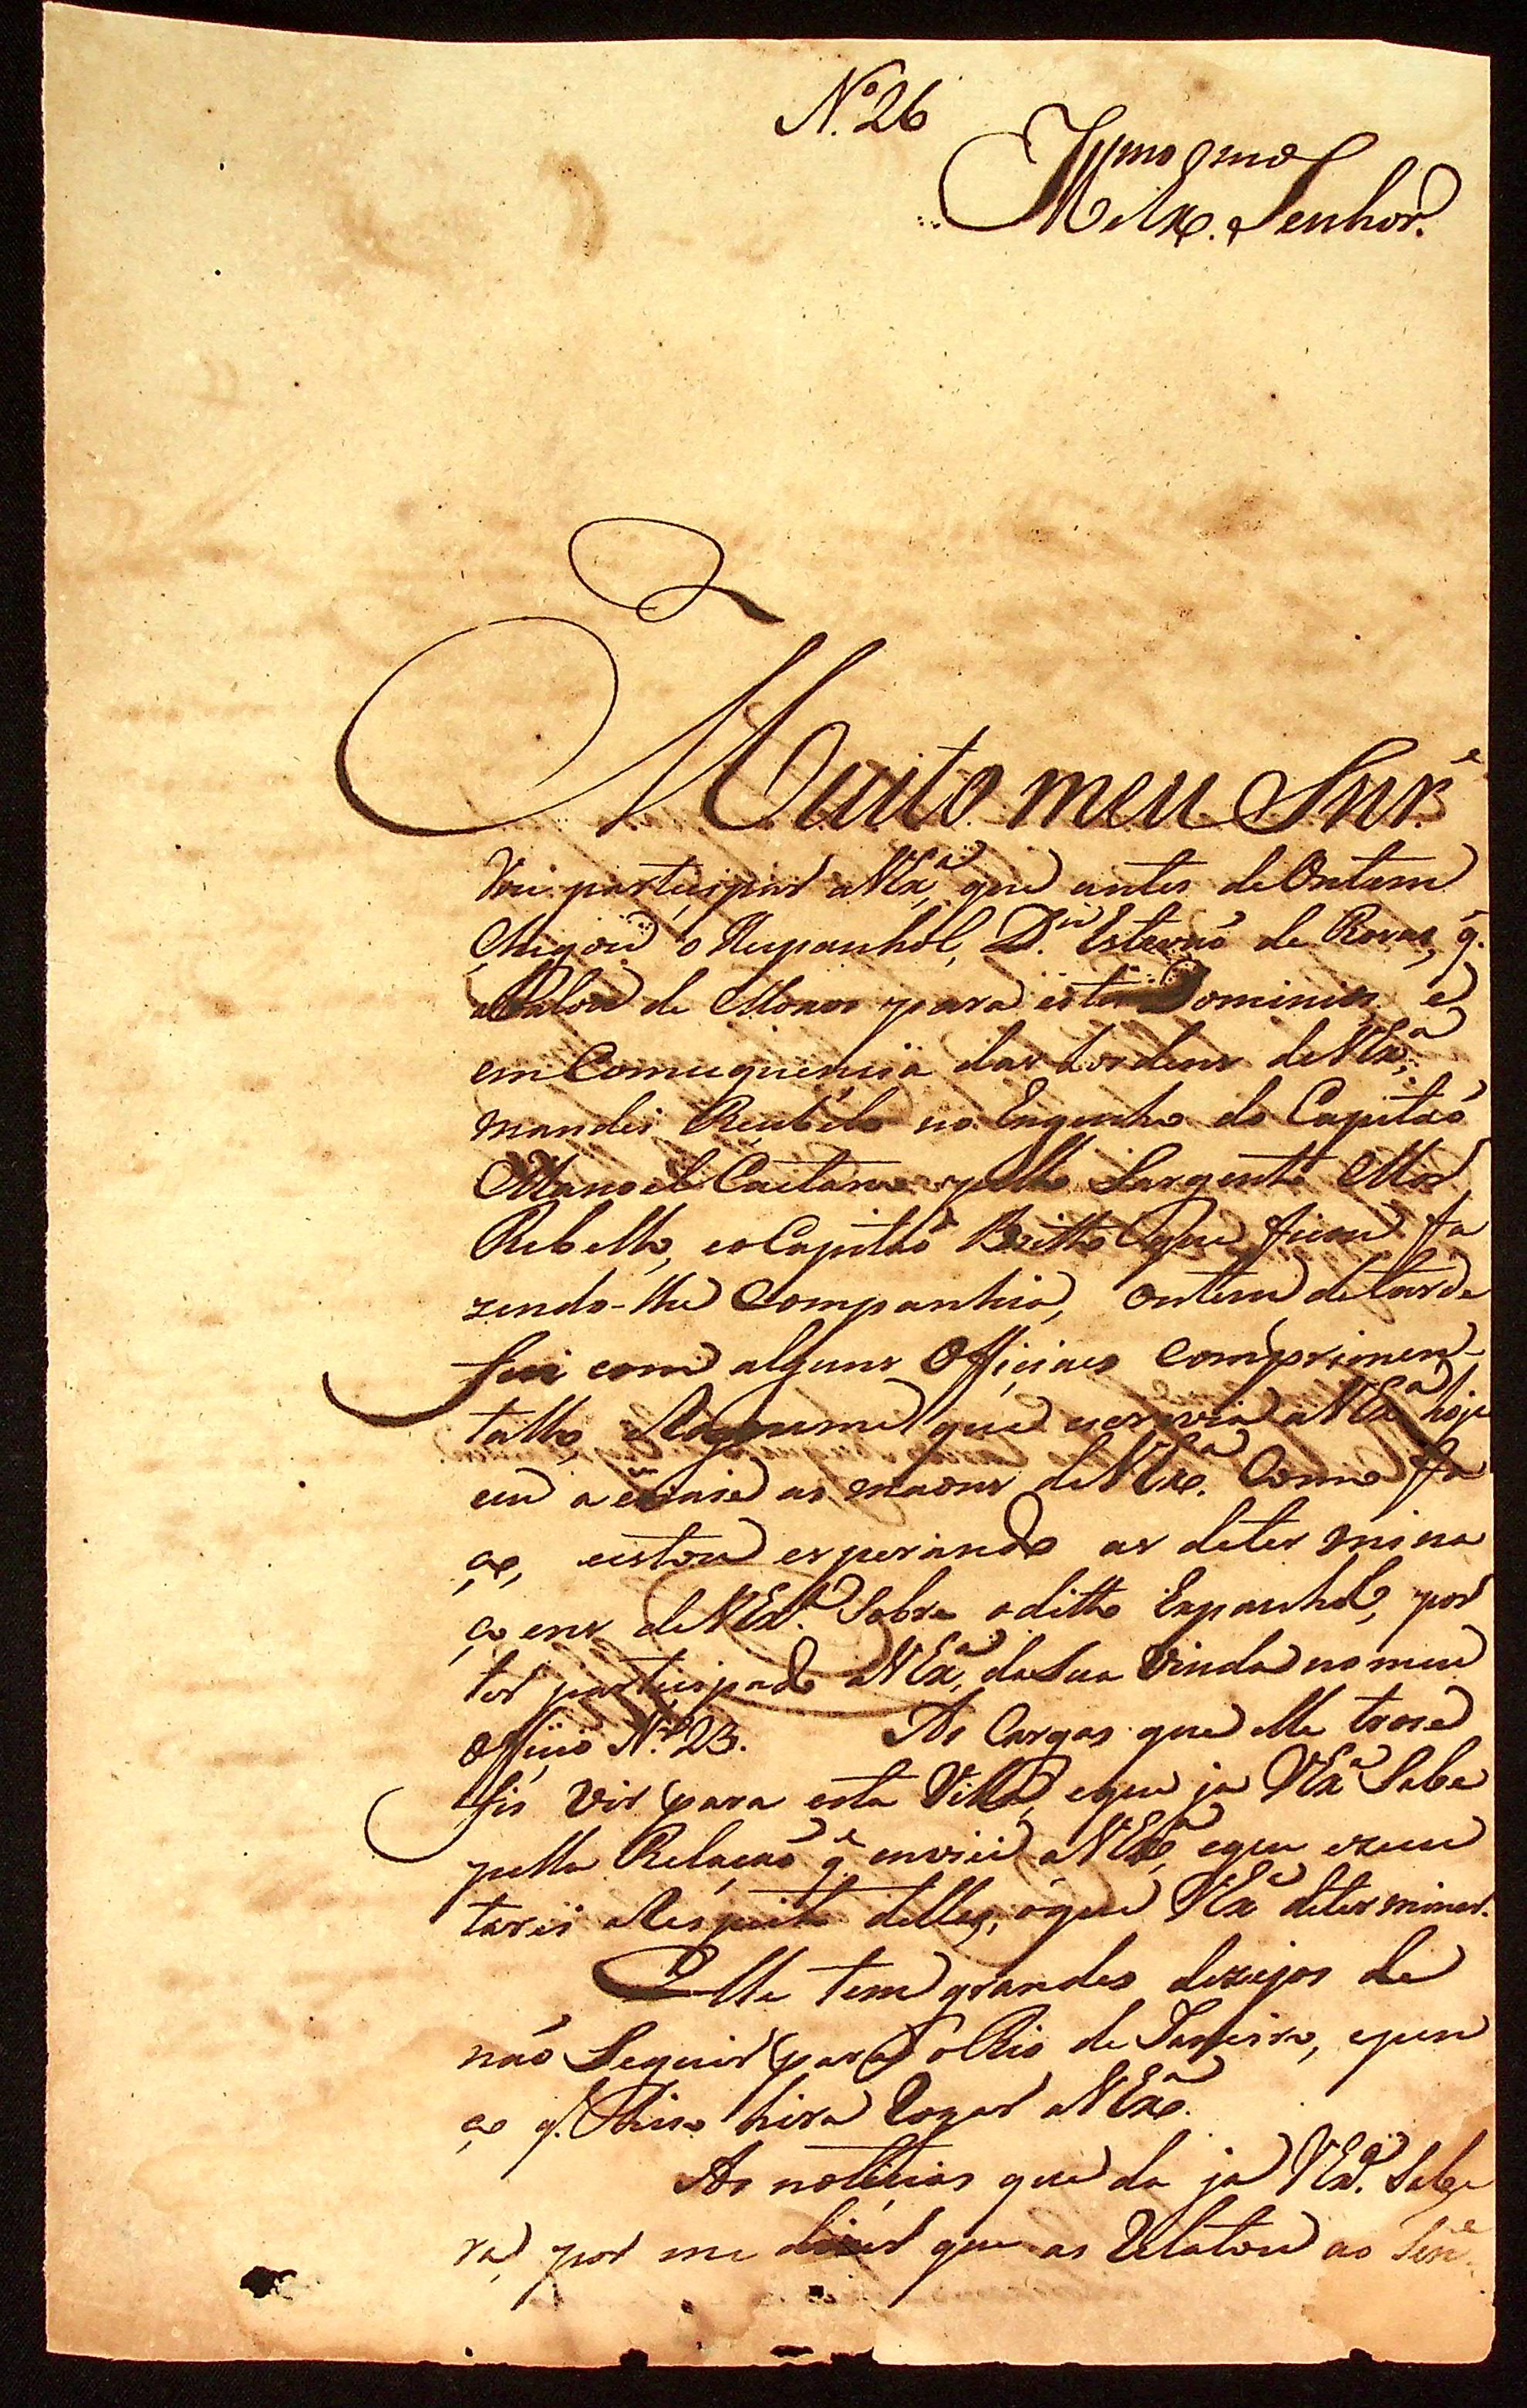 N.º 26
Illmo e Exmo Senhor.
Muito meu Snr.e
Vou participar a VExª, que antes de Ontem
Chegou o Hespanhol, D.n Estevaõ de Rosas, q.
abalou de Moxos para estes Dominios, e
em Consequencia das hordens de VExª,
mandei Recebêlo no Engenho do Capitaõ
Manoel Caetano pello Sargento Mor
Rebello, e o Capitaõ Britto que ficou fa
zendo-lhe companhia, Ontem de tarde
fui com alguns Officiaes comprimen-
tallo, e Rogoume que escrevia a VExª hoje
eu a as maons de VExª. Como fa
ço, e estou esperando as determina
çoens de VExª. Sobre o ditto Espanhol, por
ter participado a VExª, da sua Vinda no meu
Officio N.º 23. As Cargas que elle trose
fis vir para esta Villa, e que ja VExª Sabe
pella Relaçaõ q̃ enviei a VExª, e que execu
tarei a Respeito dellas, o que VExª determinar.
Elle tem grandes dezejos de
naõ Seguir para o Rio de Janeiro, e pen
ço q. hira Rogar a VExª.
As noticias que da ja VExª. Sabe
rá, por me dizer que as Relatou ao Sen.e